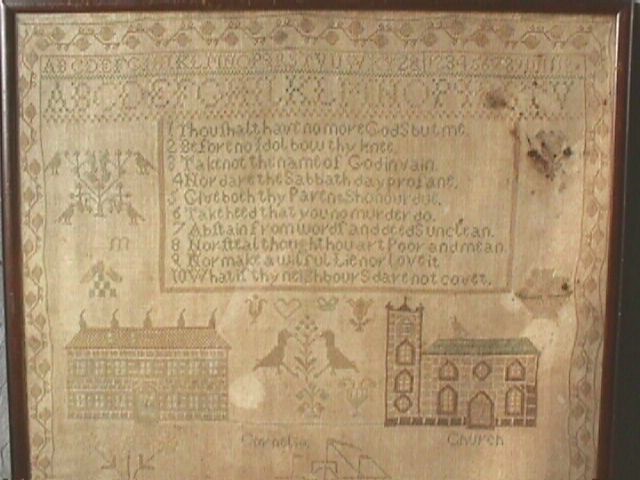 ABCDEFGHIKLMNOPQRSTVUWXYZ&123456789101112
ABCDEFGHIKLMNOPQ XY
1 Thou shalt have no more Gods but me.
2 Before no Idol bow thy knee.
3 Take not the name of God in vain.
4 Nor dare the Sabbath day profane.
5 Give both thy Parents honour due.
6 Take heed that you no murder do.
7 Abstain from word s and deed s unclean.
8 Nor steal though thou art Poor and mean.
9 Nor make a wilful Lie nor love it
10 What is thy neighbours dare not covet.
m
Cornelia
Church